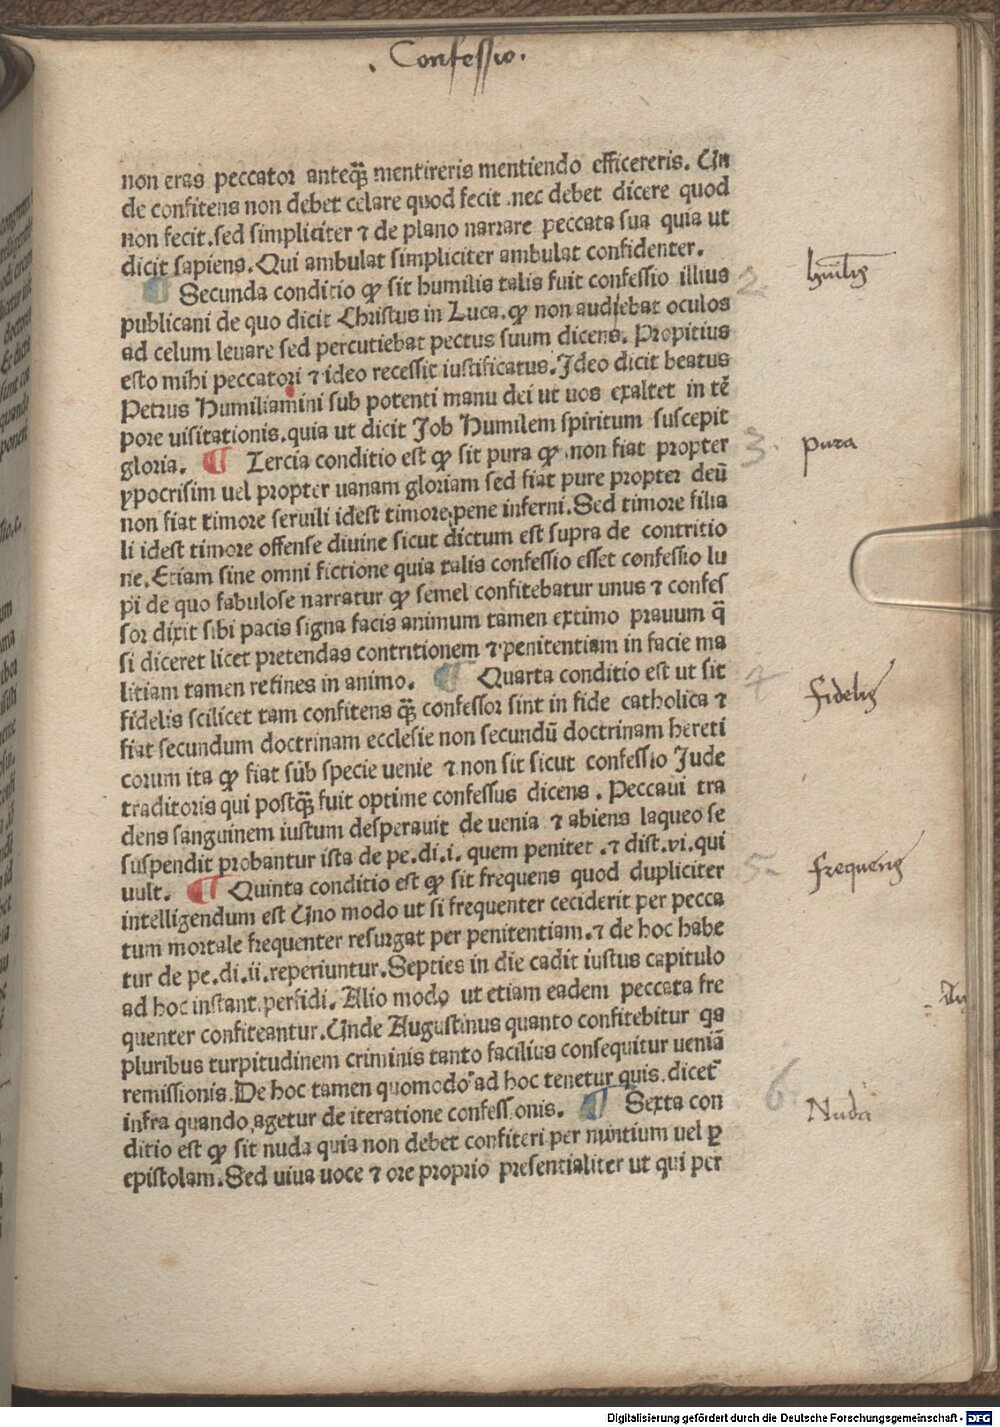 . Confessio .
non eras peccator anteq̃ȝ mentireris mentiendo efficereris. Un
de confitens non debet celare quod fecit .nec debet dicere quod
non fecit.sed simpliciter ⁊ de plano narrare peccata sua quia ut
dicit sapiens.Qui ambulat simpliciter ambulat confidenter.
¶ Secunda conditio ꝙ sit humilis talis fuit confessio illius
2. hũilis
publicani de quo dicit Christus in Luca.ꝙ non audiebat oculos
ad celum leuare sed percutiebat pectus suum dicens. Propitius
esto mihi peccatori ⁊ ideo recessit iustificatus.Ideo dicit beatus
Petrus Humiliamini sub potenti manu dei ut uos exaltet in tẽ
pore uisitationis.quia ut dicit Job Humilem spiritum suscepit
gloria. ¶ Tercia conditio est ꝙ sit pura ꝙ .non fiat propter
3. pura
ypocrisim uel propter uanam gloriam sed fiat pure propter deũ
non fiat timore seruili idest timore pene inferni.Sed timore filia
li idest timore offense diuine sicut dictum est supra de contritio
ne.Etiam sine omni fictione quia talis confessio esset confessio lu
pi de quo fabulose narratur ꝙ semel confitebatur unus ⁊ confes
sor dixit sibi pacis signa facis animum tamen extimo prauum q̃
si diceret licet pretendas contritionem ⁊ penitentiam in facie ma
litiam tamen retines in animo. ¶ Quarta conditio est ut sit
4 fidelis
fidelis scilicet tam confitens q̃ȝ confessor sint in fide catholica ⁊
fiat secundum doctrinam ecclesie non secundũ doctrinam hereti
corum ita ꝙ fiat sub specie uenie ⁊ non sit sicut confessio Jude
traditoris qui postq̃ȝ fuit optime confessus dicens . Peccaui tra
dens sanguinem iustum desperauit de uenia ⁊ abiens laqueo se
suspendit probantur ista de pe.di.i. quem penitet .⁊ dist.vi.qui
uult. ¶ Quinta conditio est ꝙ sit frequens quod dupliciter
5. frequens
intelligendum est Uno modo ut si frequenter ceciderit per pecca
tum mortale frequenter resurgat per penitentiam.⁊ de hoc habe
tur de pe.di.ii.reperiuntur.Septies in die cadit iustus capitulo
ad hoc instant.perfidi. Alio modo ut etiam eadem peccata fre
quenter confiteantur.Unde Augustinus quanto confitebitur qs
pluribus turpitudinem criminis tanto facilius consequitur ueniã
remissionis.De hoc tamen quomodo ad hoc tenetur quis.dicet᷑
infra quando agetur de iteratione confess onis. ¶ Sexta con
6. Nuda
ditio est ꝙ sit nuda quia non debet confiteri per nuntium uel ꝑ
epistolam.Sed uiua uoce ⁊ ore proprio presentialiter ut qui per
Digitalisierung gefördert durch die Deutsche Forschungsgemeinschaft - DFG